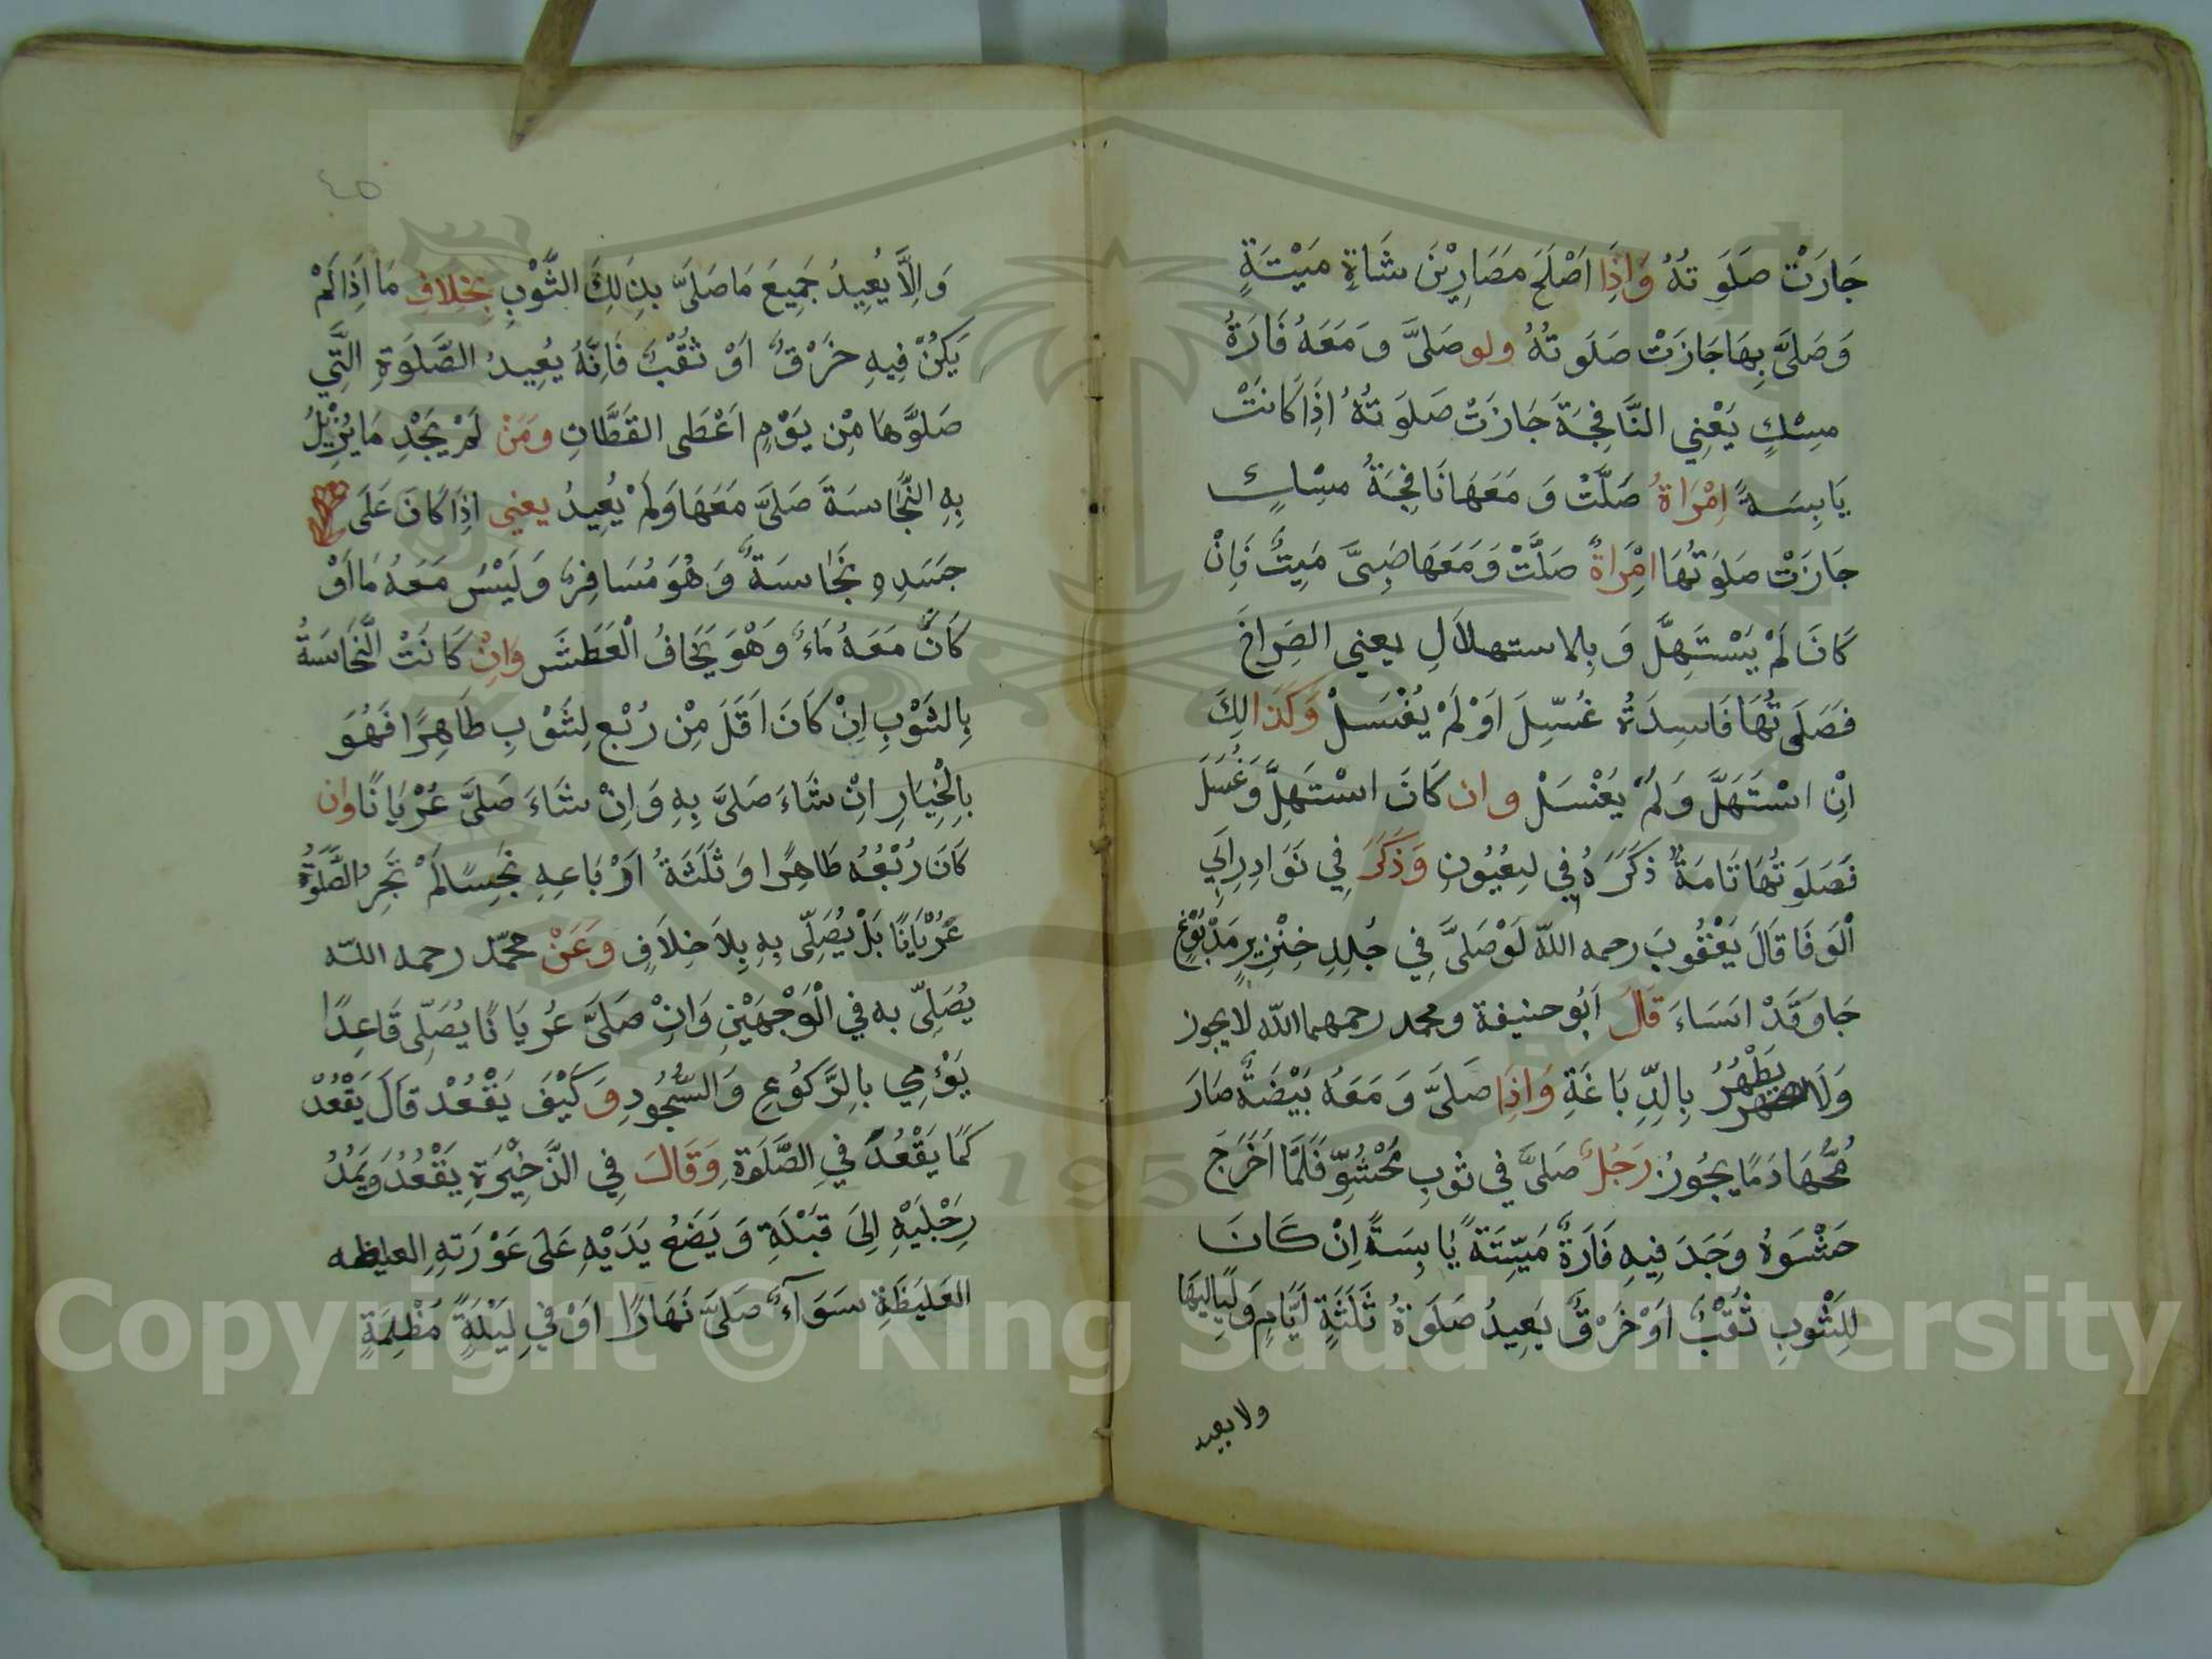 جَازَتْ صَلَوتُهُ وَاِذَا اَصْلَحَ مَصَارِيْنَ شَاةٍ مَيْتَةٍ
وَصَلَىَّ بِهَا جَازَتْ صَلَوتُهُ ولو صَلىَّ وَمَعَهُ فَارَةُ
مِسْكٍ يَعْنِي النَّافِجَةَ جَازَتْ صَلَوتُهُ اِذَا كَانَتْ
يَابِسَةً اِمْرَاةُ صَلَّتْ وَمَعَهَا نَافِجَةُ مِسْكٍ
جَازَتْ صَلَوتُهَا امْرَاةً صَلَّتْ وَمَعَهَا صَبِىٌّ مَيِتٌ فَاِنْ
كَانَ لَمْ يَسْتَهِلَّ وَبِالاستهلاَلِ يعني الصِرَاخَ
فَصَلَوتُهَا فَاسِدَةٌ غُسِّلَ اَوْ لَمْ يُغْسَلْ وَكَذَالِكَ
اِنْ اسْتَهَلَّ وَلَمْ يُغْسَلْ وان كَانَ اسْتَهِلَّ وَغُسَلَ
فَصَلَوتُهَا تَامَةٌ ذَكَرَهُ فِي لعُيُونِ وَذَكَرَ فِي نَوَادِرِ اَبِي
الْوَفَا قَالَ يَعْقُوبَ رحمه اللّه لَوْ صَلىَّ فِي جُلِدِ خِنْزِيرٍ مَدْبُوْغٍ
جَا وَقَدْ اسَاءَ قَالَ اَبُو حنيفة ومحمد رحمهما اللّه لا يجوز
وَلَا يَطْهُرُ بِالدِّبَاغَةِ وَاِذَا صَلىَّ وَمَعَهُ بَيْضَةٌ صَارَ
مُحُّهَا دَمًا يجُوزُ رَجُلٌ صَلىَّ فِي ثوبِ مَحْشُوِّ فَلَمَّا اَخَرَجَ
حَشْوَهُ وَجَدَ فِيهِ فَارَةً مَيِّتَةً يَابِسَةً اِنْ كَانَ
لِلِثْوبِ ثُقْبٌ اَوْ خَرْقٌ يَعِيدُ صَلَوةُ ثَلَثَةٍ اَيَّامٍ وَلَيَالِيَهَا
ولا يعيد
٤٥
وَاِلَّا يُعِيدُ جَمِيعَ مَا صَلىَّ بذَلِكَ الثَّوْبِ بِخِلافِ مَا اَذَا لَمْ
يَكُنْ فِيهِ خَرْقٌ اَوْ ثُقْبٌ فَاِنَّهُ يُعِيدُ الصَّلَوَةِ التَّيِ
صَلَوَّهَا مِنْ يَوْمِ اَعْطَى القَطَّانِ وَمَنْ لَمْ يَجْدِ مَا يُزِيْلُ
بِهِ النَّجَاسَةَ صَلىَّ مَعَهَا وَلَمْ يُعِيدُ يعنى اِذَا كَانَ عَلَى
جَسَدِهِ نَجَاسَةٌ وَهُوَ مُسَافِرٌ وَلَيْسَ مَعَهُ مَا اَوْ
كَانَ مَعَهُ مَاءٌ وَهْوَ يَخَافُ الْعَطَشَ وَاِنْ كَانَتْ النَّجَاسَةُ
بِالثَوْبِ اِنْ كَانَ اَقَلَ مِنْ رُبْعِ لثَوْبِ طَاهِرًا فَهُوَ
بِالْخِيَارِ اِنْ شَاءَ صَلىَّ بِهِ وَاِنْ شَاءَ صَلىَّ عُرْيَانًا وان
كَانَ رُبْعُهُ طَاهِرًا وَثَلَثَةُ اَرْبَاعِهِ نَجِسًا لَمْ تَجِز الصَّلَوةُ
عُرْيَانًا بَلْ يُصَلِّى بِهِ بِلاَ خِلاَفٍ وَعَنْ محمّد رحمه اللّه
يُصَلِىّ به في الْوَجْهَيْنِ وَاِنْ صَلىَّ عُريَانًا يُصَلِّى قَاعِدًا
يَؤْمِي بالِرَّكُوعِ وَالسُّجُودِ وَكَيْفَ يَقْعُدْ قالَ يَقْعُدُ
كَمًا يَقْعُدُ فيِ الصَّلَوَةِ وَقَالَ فِي الذَّخِيْرَةِ يَقْعُدُ وَيَمُدُ
رِجْلَيْهِ اِلىَ قبْلَةِ وَيَضَعُ يَدَيْهِ عَلى عَوْرَتهِ العليظه
الغَليَظَةِ سَوَاءٌ صَلىَّ نَهَارًا اَوْ فيِ لَيْلَةٍ مَظْلِمَةٍ
Copyright © King Saud University
1957